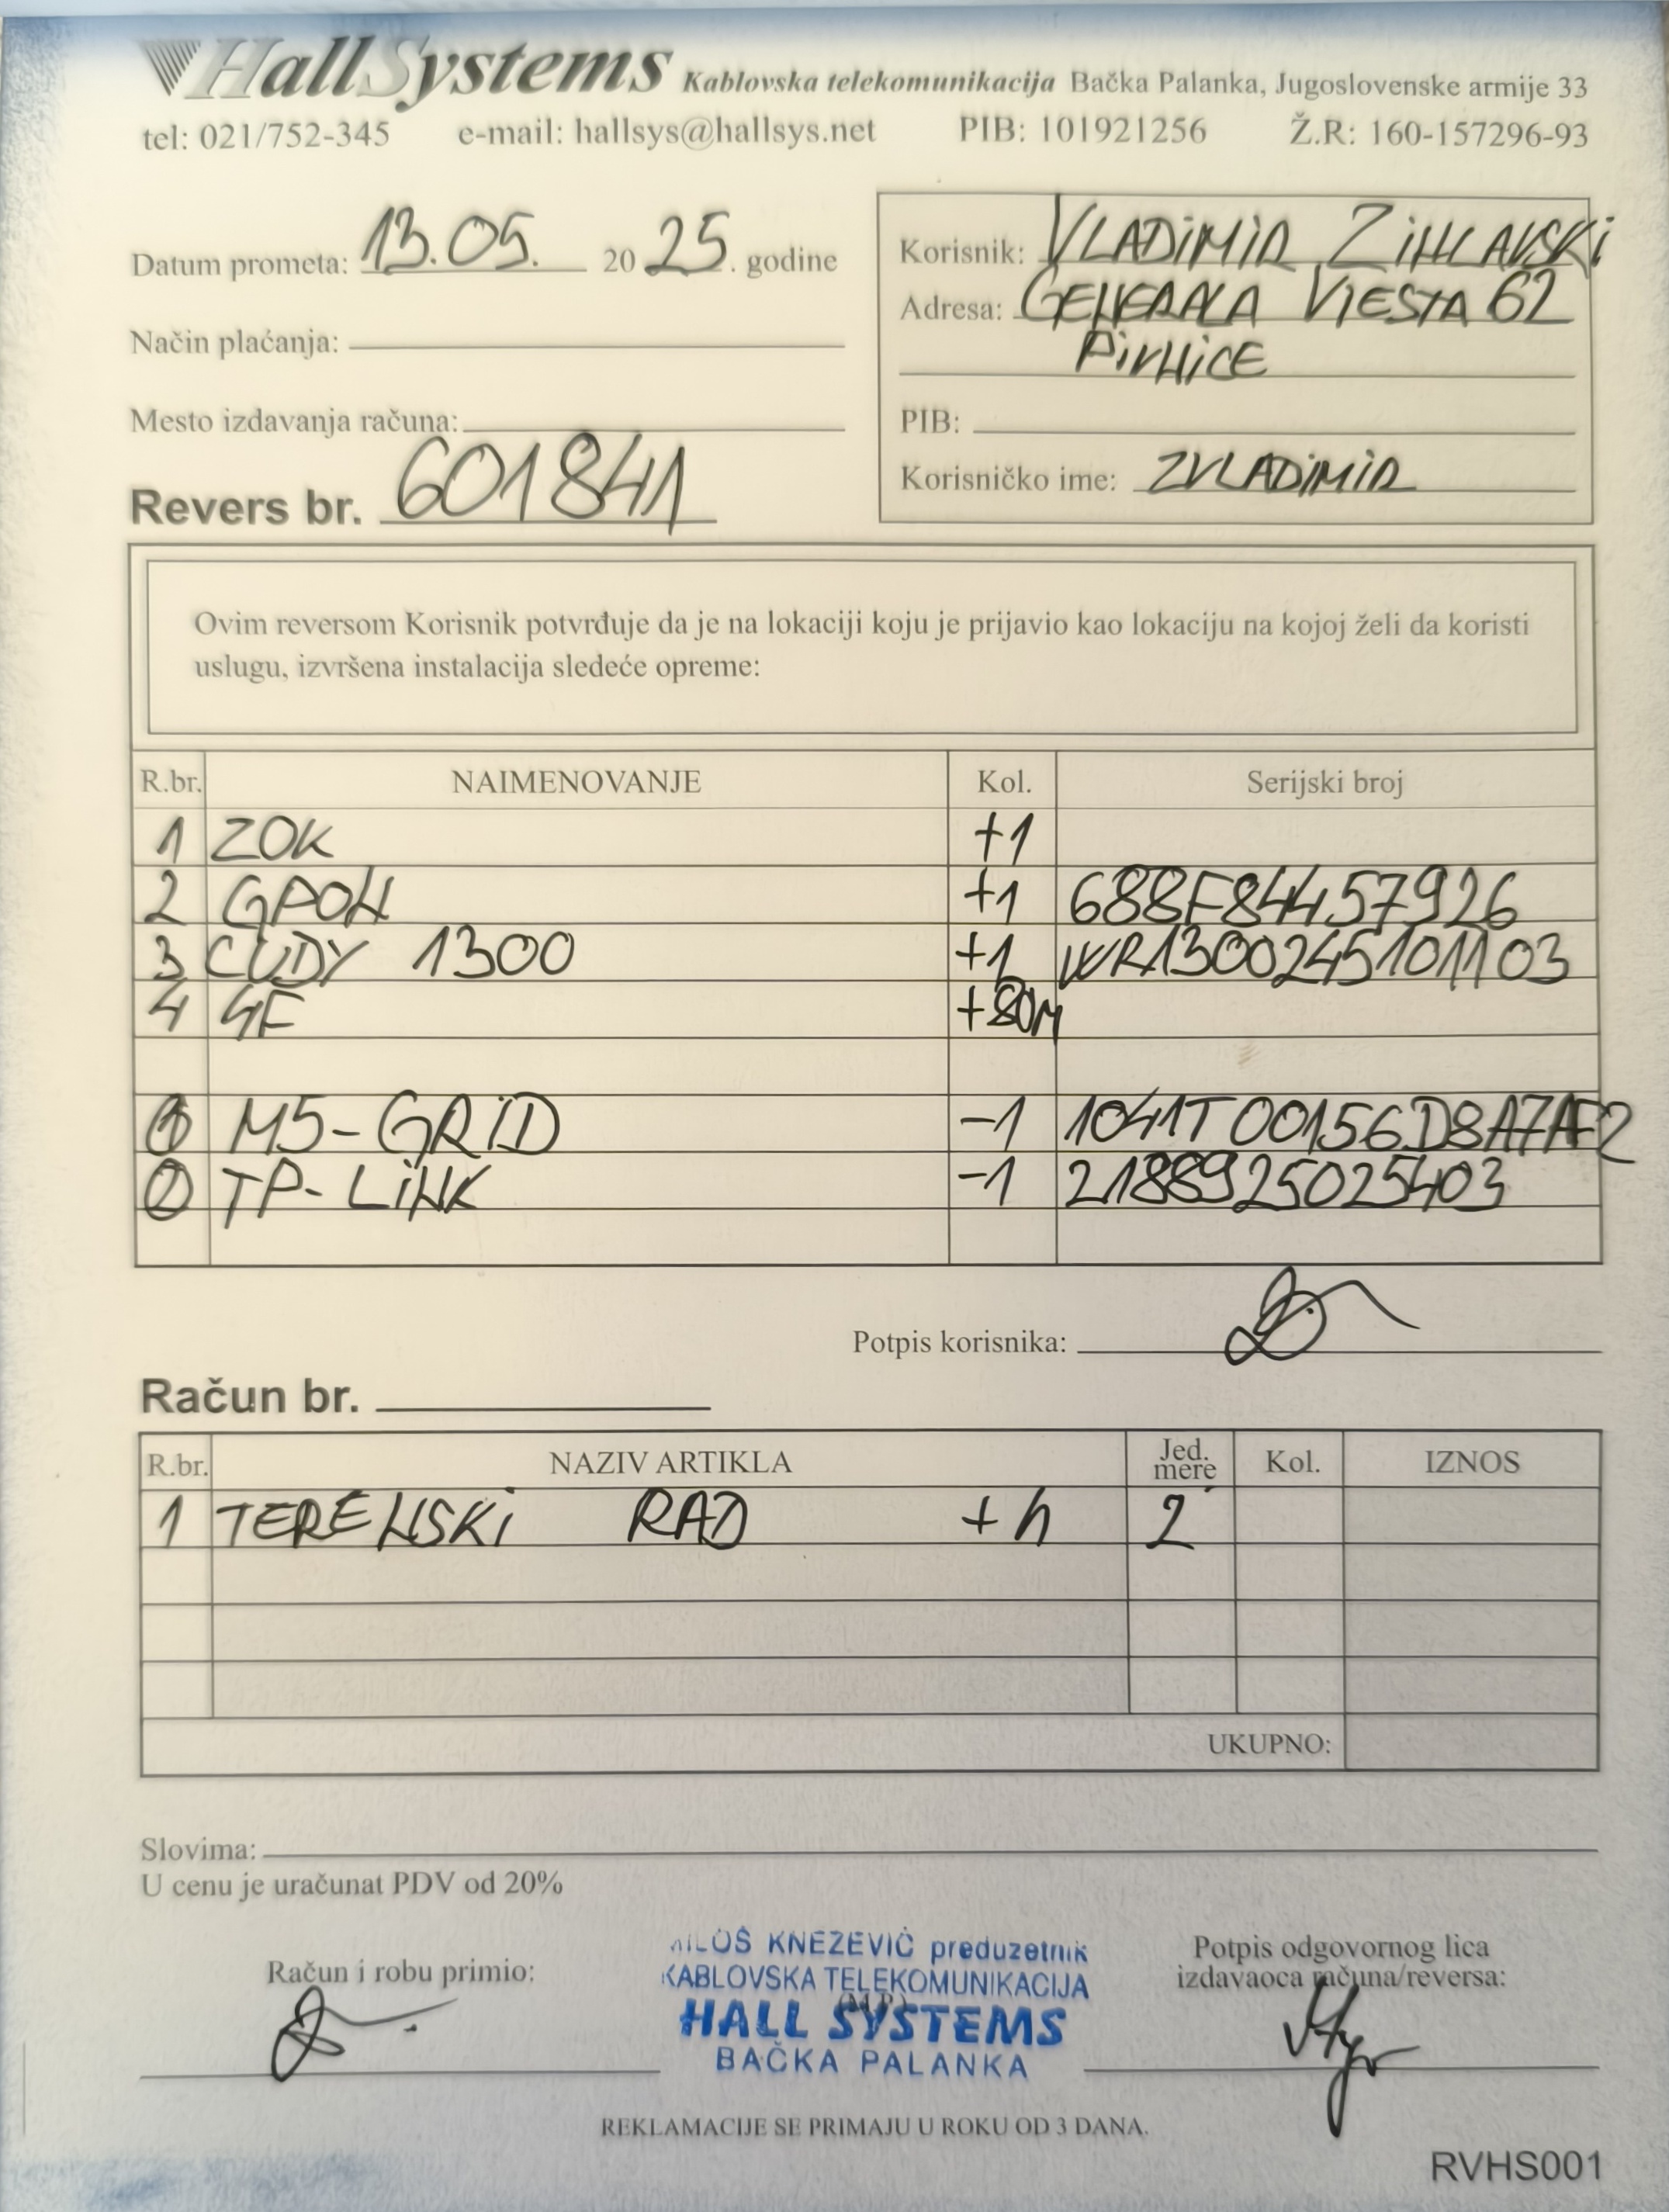 HallSystems Kablovska telekomunikacija Bačka Palanka, Jugoslovenske armije 33
tel: 021/752-345 e-mail: hallsys@hallsys.net PIB: 101921256 Ž.R: 160-157296-93
Datum prometa: 13.05. 2025. godine
Način plaćanja:
Mesto izdavanja računa:
Revers br. 601841
Korisnik: VLADiMiR ZiHLAVSKi
Adresa: GENERALA VIESTA 62
PiVNiCE
PIB:
Korisničko ime: ZVLADiMiR
Ovim reversom Korisnik potvrđuje da je na lokaciji koju je prijavio kao lokaciju na kojoj želi da koristi
uslugu, izvršena instalacija sledeće opreme:
R.br. NAIMENOVANJE Kol. Serijski broj
1 ZOK +1
2 GPON +1 688F84457926
3 CUDY 1300 +1 WR13002451011103
4 +80M
1 M5-GRiD -1 1041T00156D8A7AF2
2 TP-LiNK -1 2188925025403
Potpis korisnika:
Račun br.
R.br. NAZIV ARTIKLA Jed. mere Kol. IZNOS
1 TERENSKi RAD +h 2
UKUPNO:
Slovima:
U cenu je uračunat PDV od 20%
Račun i robu primio:
MILOŠ KNEZEVIĆ preduzetnik
KABLOVSKA TELEKOMUNIKACIJA
(M.P.)
HALL SYSTEMS
BAČKA PALANKA
Potpis odgovornog lica
izdavaoca računa/reversa:
REKLAMACIJE SE PRIMAJU U ROKU OD 3 DANA.
RVHS001